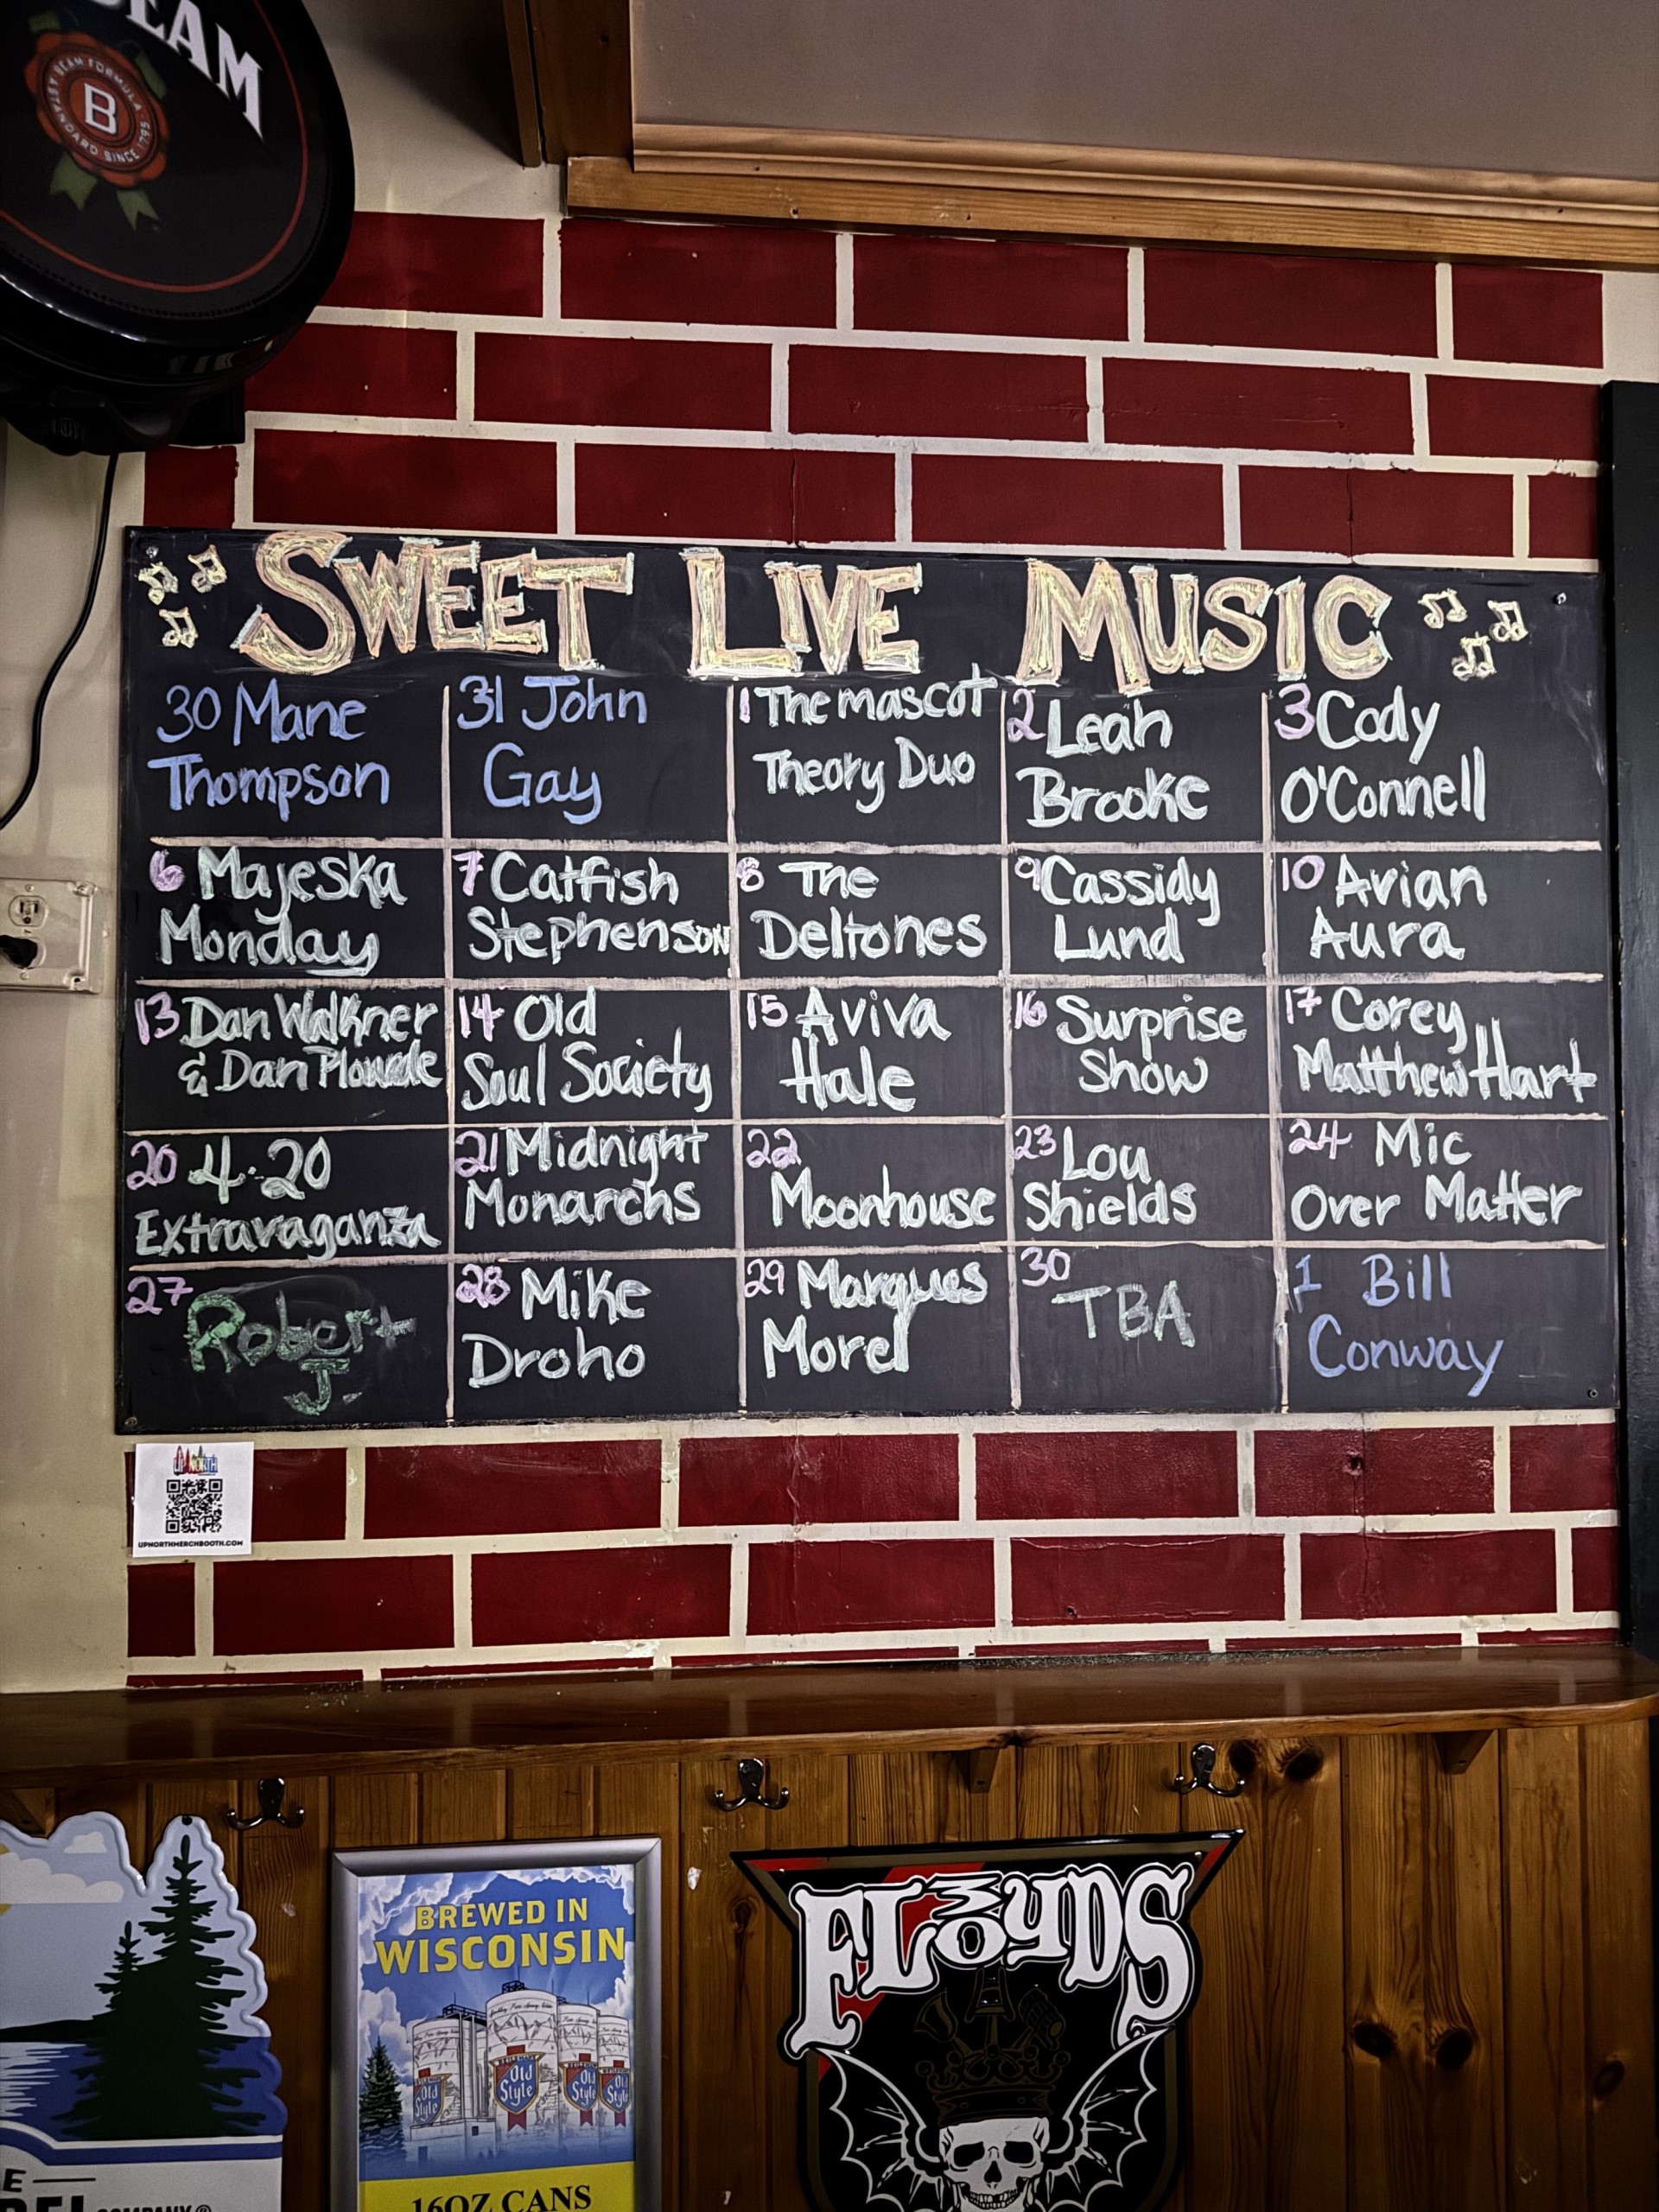 BEAM
BEAM FORMULA
B
A STANDARD SINCE 1795
SWEET LIVE MUSIC
30 Mane
Thompson
31 John
Gay
1 The mascot
Theory Duo
2 Leah
Brooke
3 Cody
O'Connell
6 Majeska
Monday
7 Catfish
Stephenson
8 The
Deltones
9 Cassidy
Lund
10 Avian
Aura
13 Dan Walkner
& Dan Plourde
14 Old
Soul Society
15 Aviva
Hale
16 Surprise
Show
17 Corey
Matthew Hart
20 4:20
Extravaganza
21 Midnight
Monarchs
22
Moonhouse
23 Lou
Shields
24 Mic
Over Matter
27 Robert
J.
28 Mike
Droho
29 Marques
Morel
30
TBA
1 Bill
Conway
UP NORTH
UPNORTHMERCHBOOTH.COM
BREWED IN
WISCONSIN
Old Style
Old Style
Old Style
Old Style
16OZ CANS
3
FLOYDS
COMPANY®